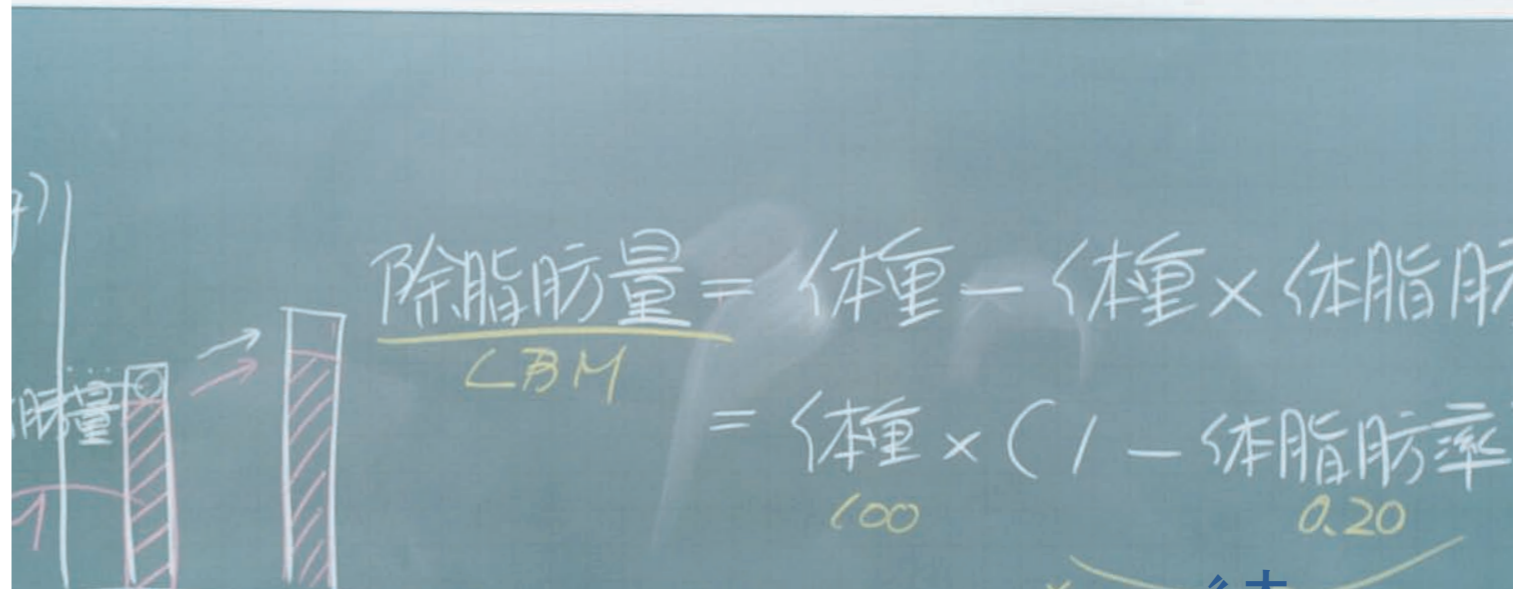 除脂肪量 = 体重 - 体重 × 体脂肪
LBM
= 体重 × (1 - 体脂肪率
100
0.20
肪量